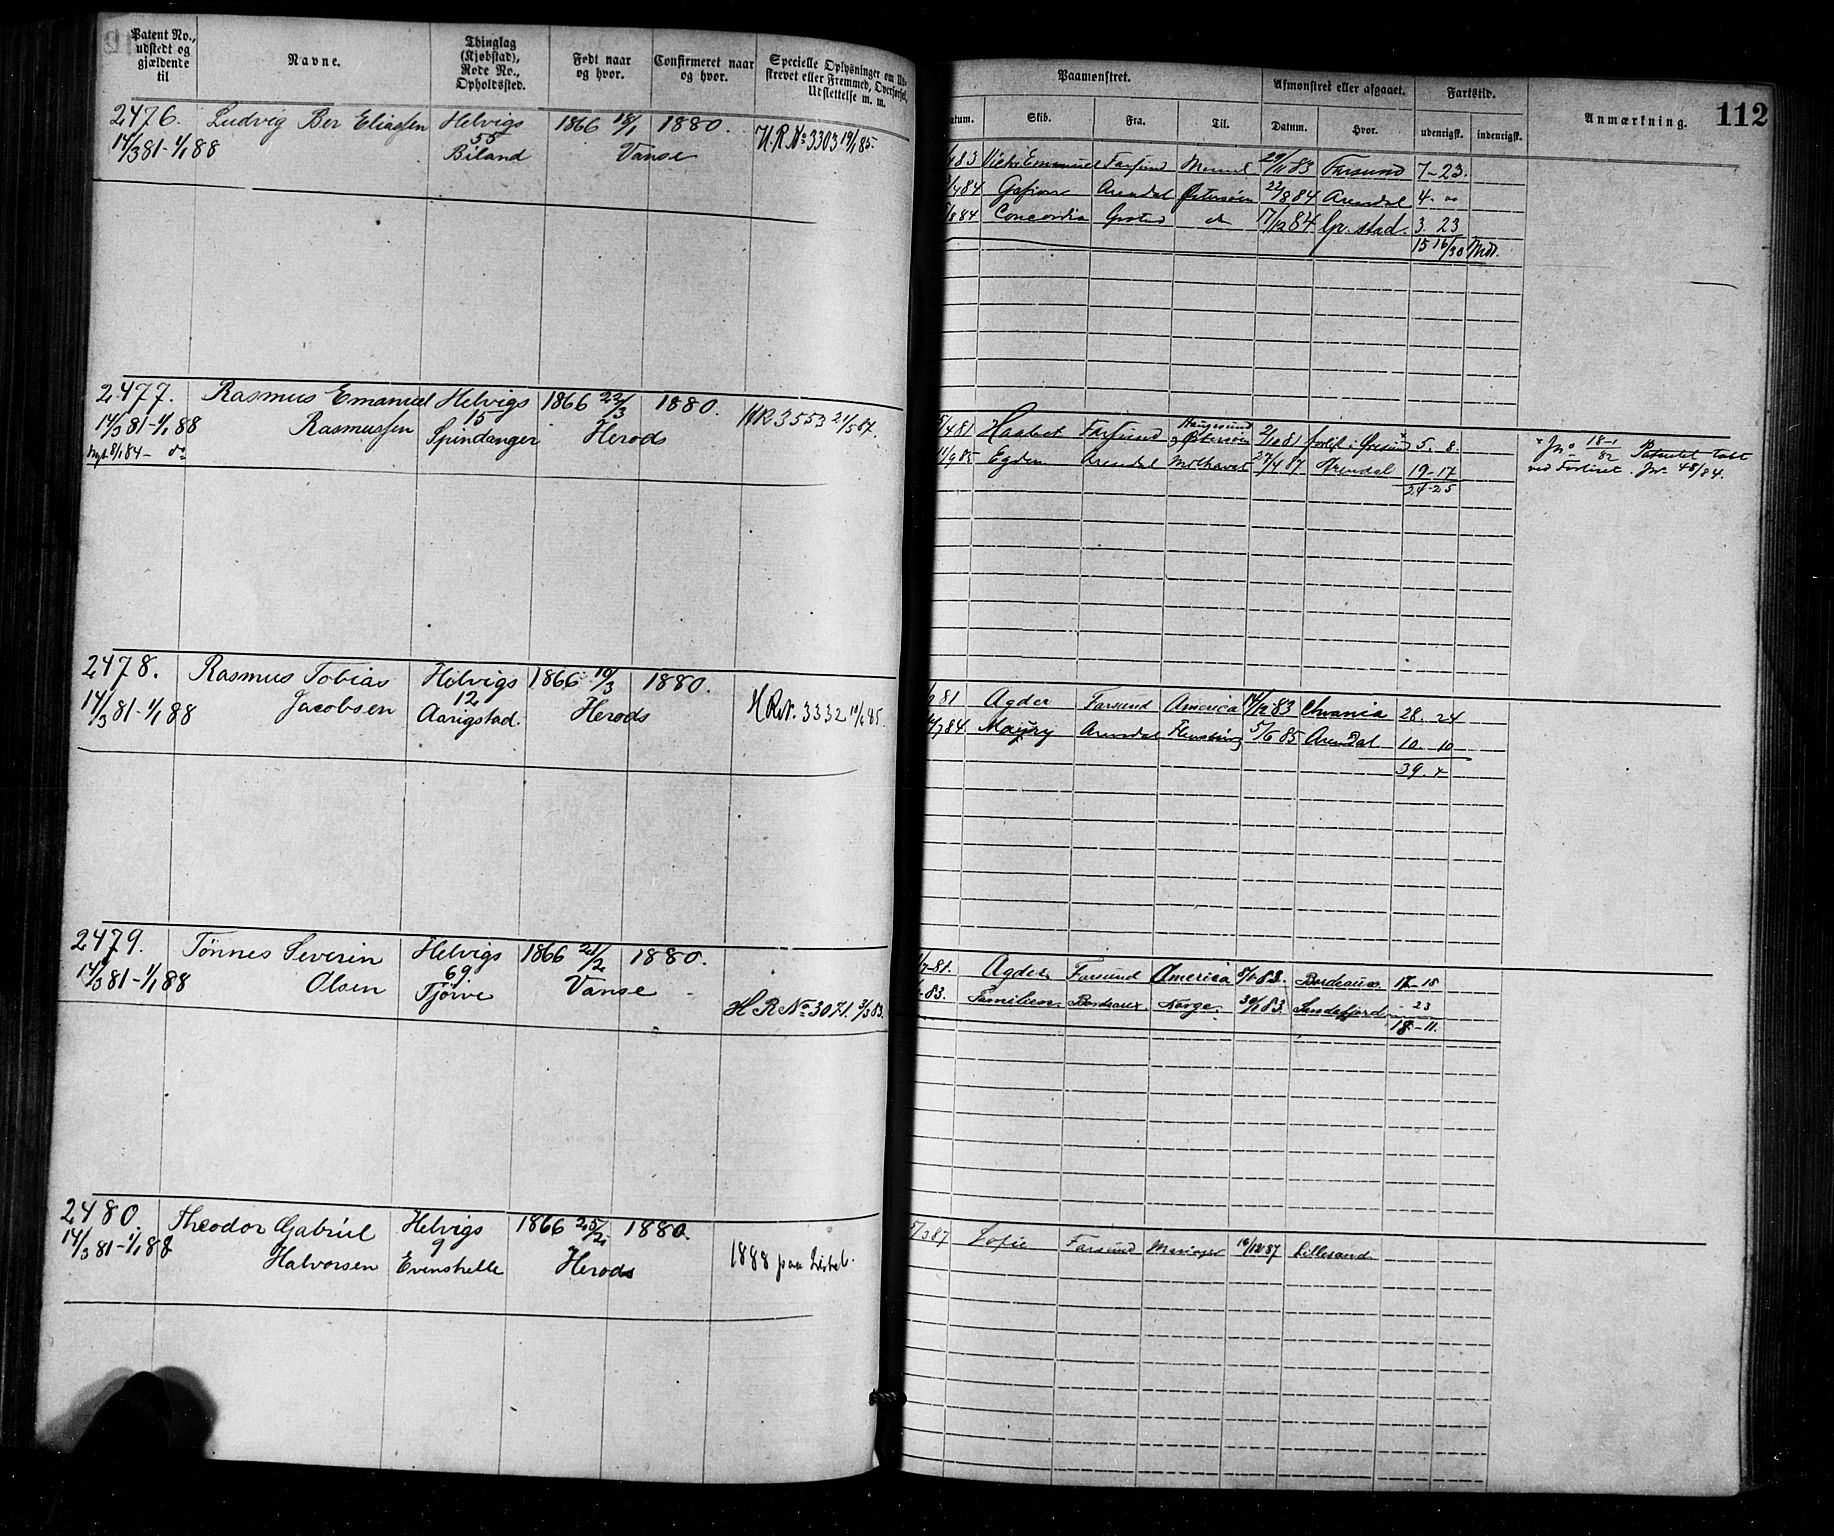 Patent No., udstedt og gjældende til
Navne.
Thinglag (Kjøbstad), Rode No., Opholdssted.
Født naar og hvor.
Confirmeret naar og hvor.
Specielle Oplysninger om Udskrevet eller Fremmed, Overførsel, Udslettelse m. m.
2476. Ludvig Ber Eliassen Helvigs 1866 18/1 1880.
14/3 81-1/1 88 55 Biland Vanse H.R No 3303 19/1 85.
2477. Rasmus Emanuel Helvigs 1866 22/3 1880.
14/3 81-1/1 88 Rasmussen 15 Spindanger Herods HR 3553 21/5 87.
Nyt 8/1 84 - do
2478. Rasmus Tobias Helvigs 1866 19/3 1880.
14/3 81-1/1 88 Jacobsen 12 Aarigstad. Herods H R Nr. 3332
2479. Tönnes Severin Helvigs 1866 21/2 1880.
14/3 81-1/1 88 Olsen 69 Tjörve Vanse H R No 3071. 3/3 83.
2480. Theodor Gabriel Helvigs 1866 25/2 1880.
14/3 81-1/1 88 Halvorsen 9 Evenstelle Herods 1888 paa
112
Paamønstret.
Afmønstret eller afgaaet.
Fartstid.
Anmærkning.
Datum. Skib. Fra. Til. Datum. Hvor. udenrigsk. indenrigsk.
83 Emanuel Farsund 29/11 83 Farsund 7-23.
84 Arendal Østersøen 22/8 84 Arendal 4.
84 Concordia do 17/12 84 Gr. stad. 3. 23
15 16/30 Mdr.
81 Haabet Farsund Haugesund Østersøen 2/10 81 forlist i 5. 8.
85 Egden Arendal 27/4 87 Arendal 19-17
24-25
Jr. 18-1/82 Patentet tabt
ved Forliset. Jr. 48/84.
81 Agder Farsund America 14/12 83 Chrania 28. 24
84 Arendal Flensburg 5/6 85 Arendal 10. 10
39. 4
81. Agder Farsund America Bordeaux 17-18
83. Familien Bordeaux. Norge. 30/1 83. Sandefjord - 23
18-11.
87 Sofie Farsund 87 Lillesand